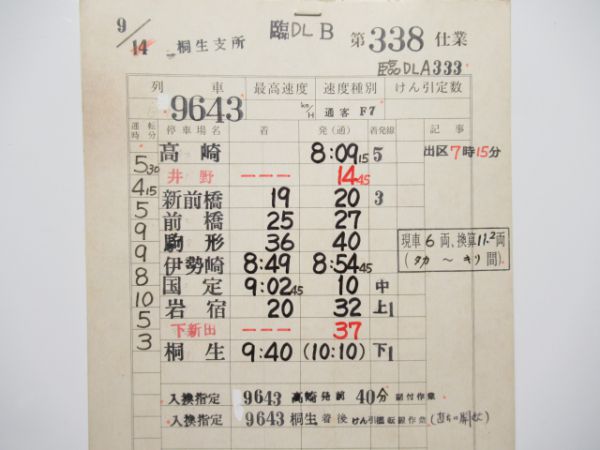 9/14 桐生支所 臨DL B 第338仕業
臨DLA333
列車 最高速度 速度種別 けん引定数
9643 km/H 通客 F7
運転時分 停車場名 着 発(通) 着発線 記事
高崎 8:09 15 5 出区7時15分
5 30
井野 --- 14 45
4 15
新前橋 19 20 3
5
前橋 25 27
9
駒形 36 40 現車6両、換算11.2両
9
伊勢崎 8:49 8:54 45 (タカ〜キリ間)
8
国定 9:02 45 10 中
10
岩宿 20 32 上1
5
下新田 --- 37
3
桐生 9:40 (10:10) 下1
入換指定 9643 高崎発前 40分 作業
入換指定 9643 桐生着後 けん引 転線作業